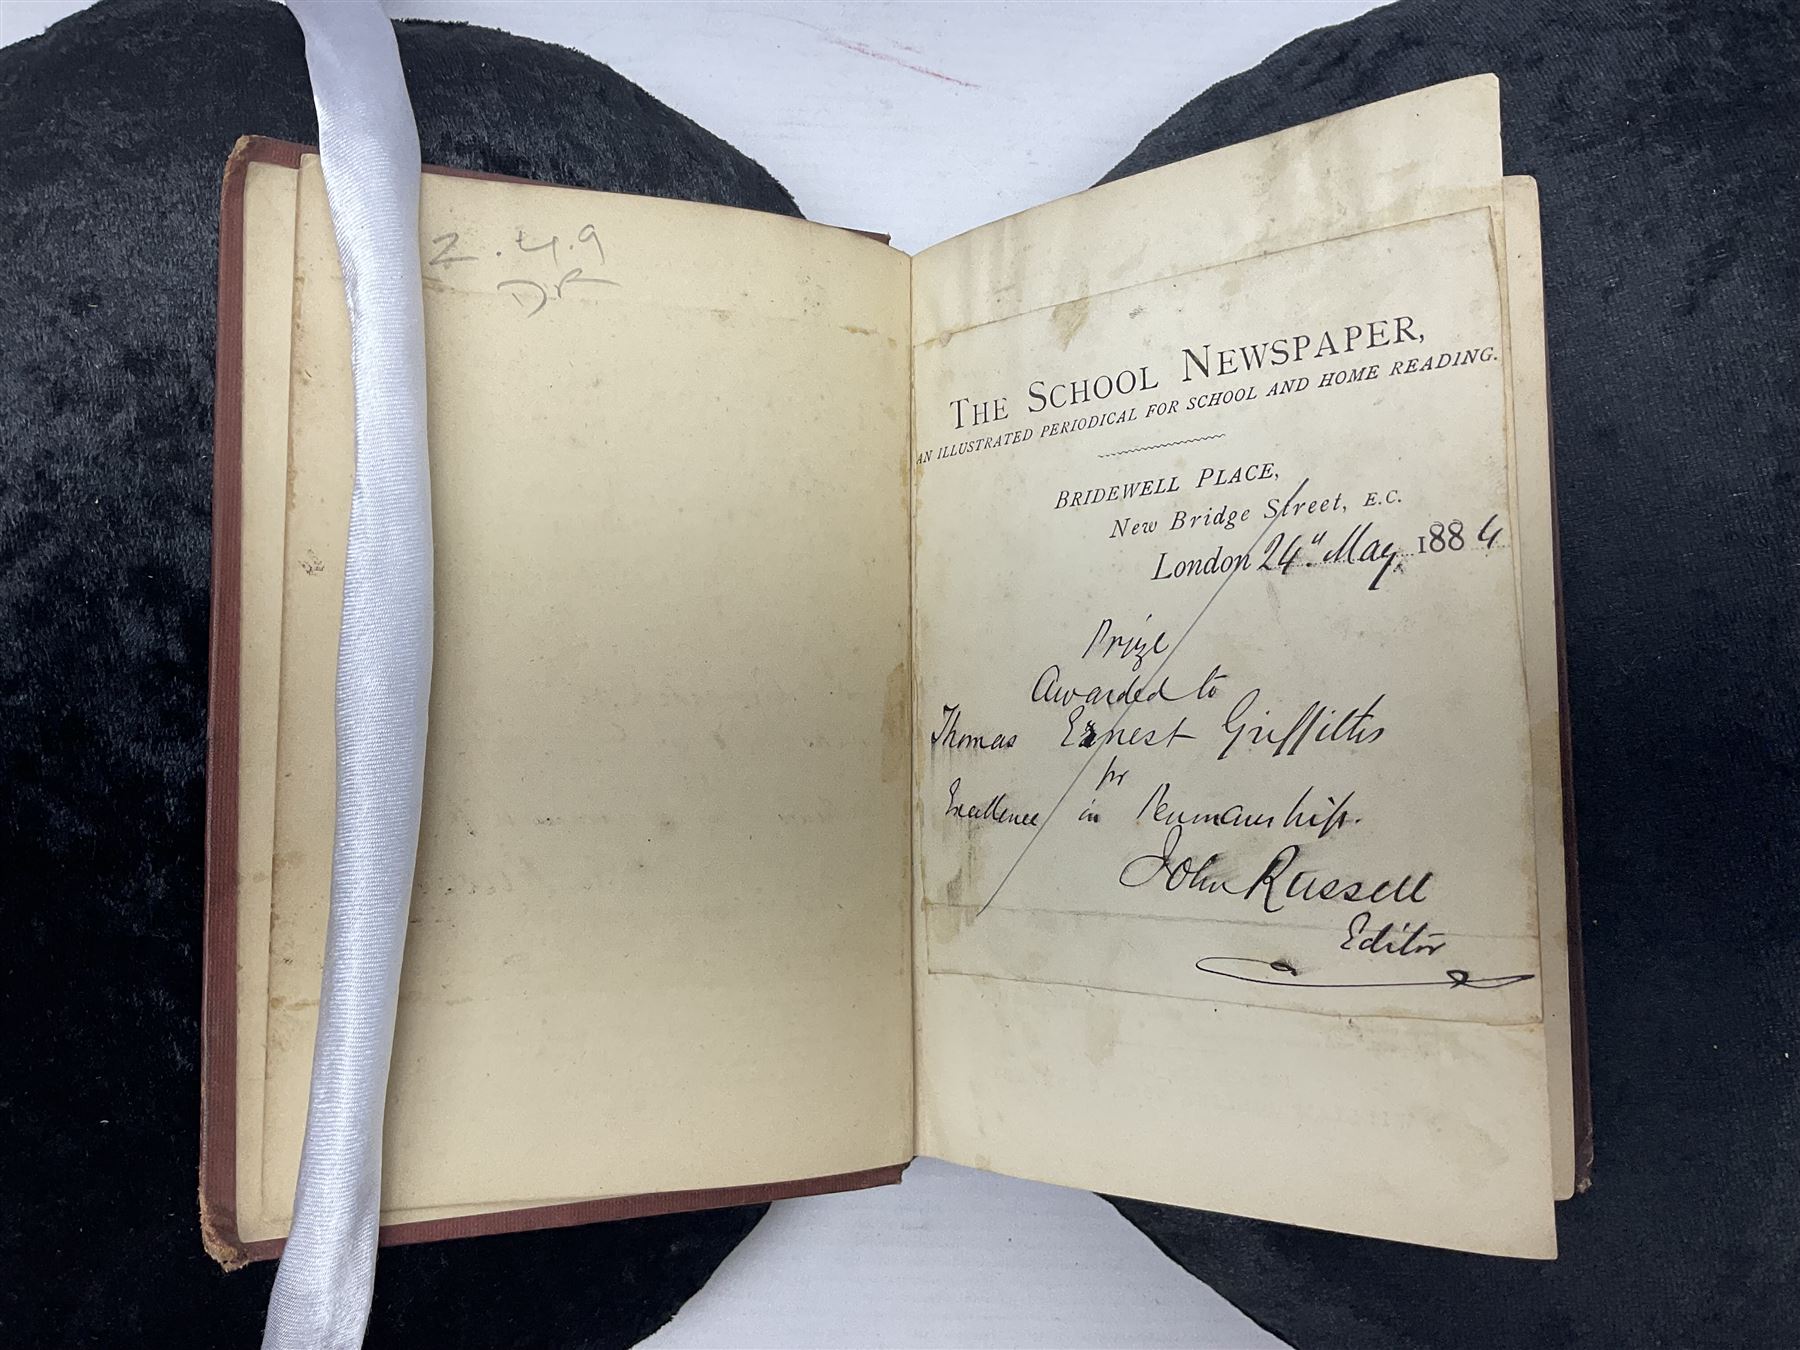 2.4.9
DR
THE SCHOOL NEWSPAPER,
AN ILLUSTRATED PERIODICAL FOR SCHOOL AND HOME READING.
BRIDEWELL PLACE,
New Bridge Street, E.C.
London 24" May, 1884
Prize
Awarded to
Thomas Ernest Griffiths
for
Excellence in Penmanship.
John Russell
Editor